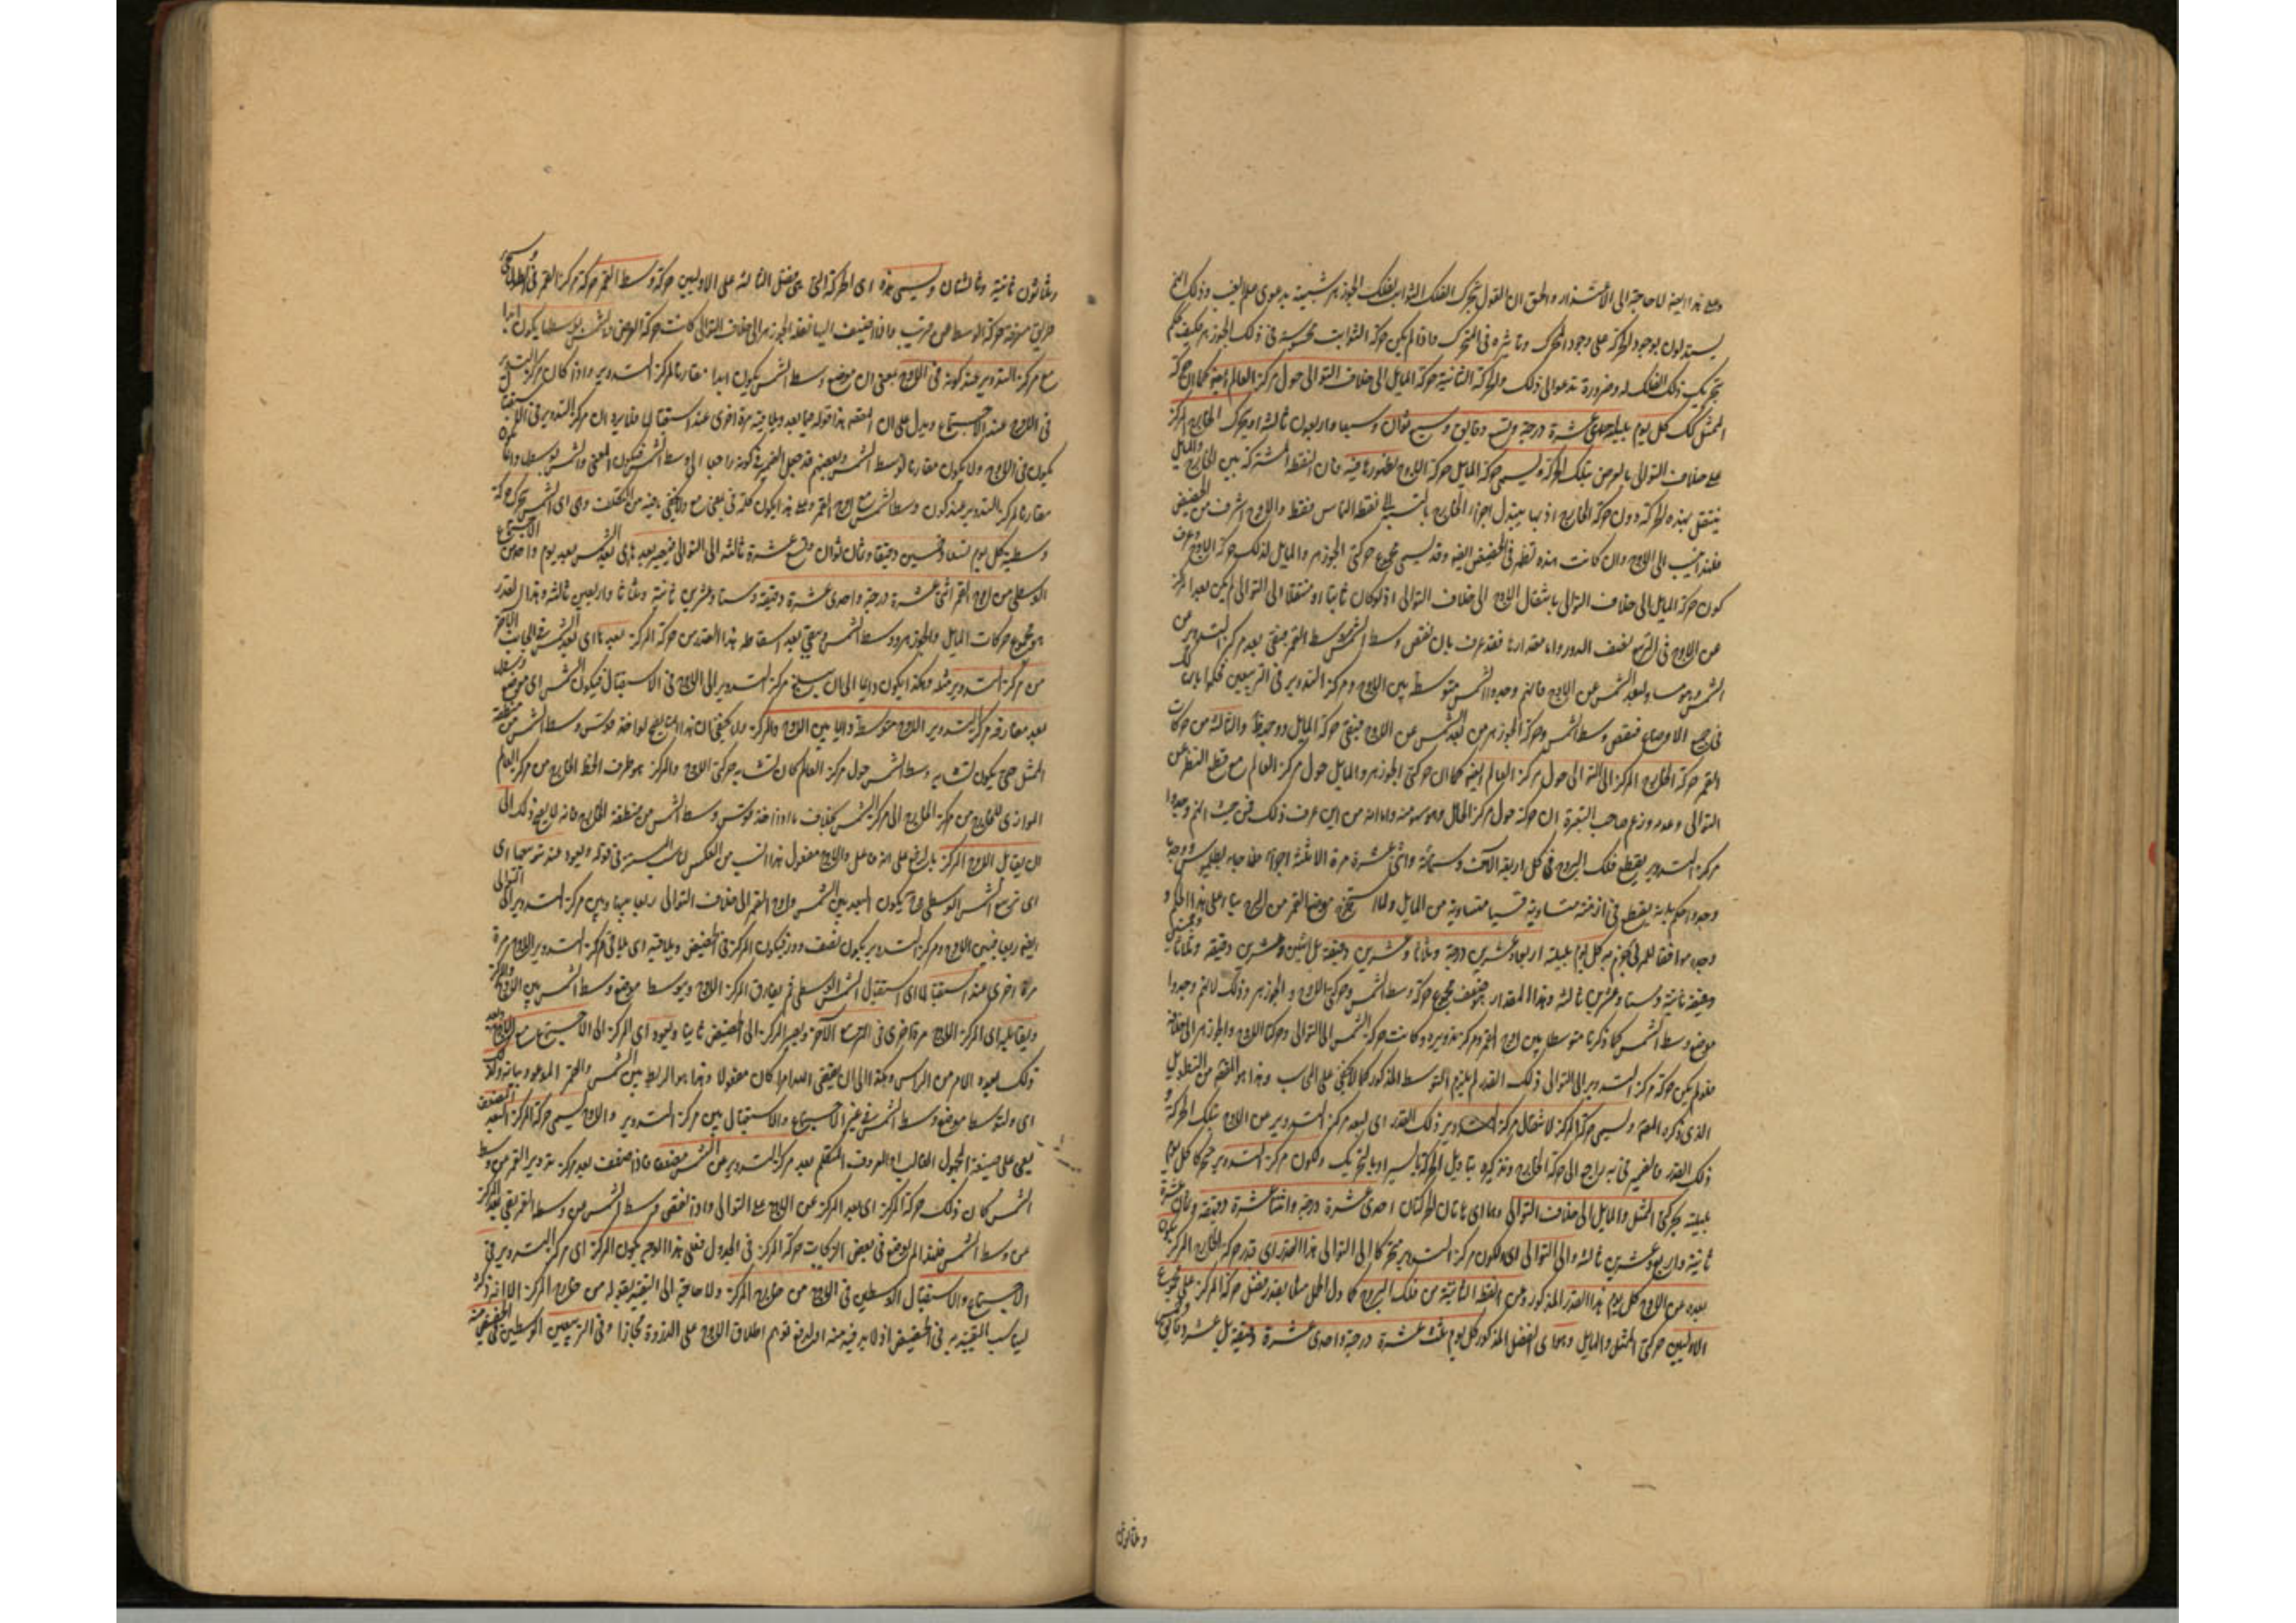 وعلى هذا ايضا لا حاجة الى الاعتذار والحق ان القول بتحرك الفلك الثوابت لفلك الجوزهر شبيه بدعوى علم الغيب وذلك انهم
يستدلون بوجود الحركة على وجود المحرك وتاثيره في المتحرك فاذا لم يكن حركة الثوابت محسوسة في ذلك الجوزهر فكيف حكم
بتحريك ذلك الفلك له وضرورة تدعو الى ذلك والحركة الثانية حركة المايل الى خلاف التوالي حول مركز العالم ايضا كما ان حركة
الممثل كذلك كل يوم بليلته احدى عشرة درجة وتسع دقايق وسبع ثوان وسبعا واربعون ثالثة ويحرك الخارج المركز
على خلاف التوالي بالعرض بتلك الحركة وليسمى حركة المايل حركة الاوج لظهورها فيه فان النقطة المشتركة بين الخارج والمايل
ينتقل بهذه الحركة دون حركة الخارج اذ بها يتبدل اجزاء الخارج بالنسبة الى نقطة التماس فقط والاوج اشرف من الحضيض
فلهذا نسب الى الاوج وان كانت هذه تظهر في الحضيض ايضا وقد يسمى مجموع حركتي الجوزهر والمايل لذلك حركة الاوج وعرف
كون حركة المايل الى خلاف التوالي بانتقال الاوج الى خلاف التوالي اذ لو كان ثابتا او منتقلا الى التوالي لم يكن بعد المركز
عن الاوج في التربيع نصف الدور واما مقدارها فقد عرف بان نقص وسط الشمس من وسط القمر فبقي بعد مركز التدوير عن
الشمس وهو مساو لبعد الشمس عن الاوج فانهم وجدوا الشمس متوسطة بين الاوج ومركز التدوير في التربيعين فحكموا بان ذلك
في جميع الاوضاع فنقص وسط الشمس وحركة الجوزهر من بعد الشمس عن الاوج فبقي حركة المايل وحدها والثالثة من حركات
القمر حركة الخارج المركز الى التوالي حول مركز العالم ايضا كما ان حركتي الجوزهر والمايل حول مركز العالم مع قطع النظر عن
التوالي وعدمه وزعم صاحب التبصرة ان حركته حول مركز المايل وهو سهو منه واما انه من اين عرف ذلك فمن حيث انهم وجدوا
مركز التدوير يقطع فلك البروج في كل اربعة الاف وستمائة واثنى عشرة مرة الا ثلثة اجزاء
وجدوا حكم بانه يقطع في ازمنة متساوية قسيا متساوية من المايل ولما استخرج موضع القمر من البروج بناء على هذا الحكم و
وجده موافقا للمرئي جزم به كل يوم بليلته اربعا وعشرين درجة وثلاثا وعشرين دقيقة بل اثنين وعشرين دقيقة وثلاثا وخمسين
دقيقة ثانية وستا وعشرين ثالثة وهذا المقدار هو ضعف مجموع حركة وسط الشمس وحركتي الاوج والجوزهر وذلك لانهم وجدوا
موضع وسط الشمس كما ذكرنا متوسطا بين اوج القمر ومركز تدويره وكانت حركة الشمس الى التوالي وحركتا الاوج والجوزهر الى خلافه
فلو لم يكن حركة مركز التدوير الى التوالي ذلك القدر لم يلزم التوسط المذكور كما لا يخفى على المحاسب وهذا هو المفهم من التطويل
الذي ذكره المصنف وليسمى حركة المركز لانتقال مركز التدوير ذلك القدر اي لبعد مركز التدوير عن الاوج بتلك الحركة و
ذلك القدر فالضمير في به راجع الى حركة الخارج وتذكيره بتاويل الحركة بالسير او بالتحريك ولكون مركز التدوير متحركا كل يوم
بليلته بحركتي الممثل والمايل الى خلاف التوالي وهما اي هاتان الحركتان احدى عشرة درجة واثنتا عشرة دقيقة وثمان عشرة
ثانية واربع وعشرين ثالثة والى التوالي اي ولكون مركز التدوير متحركا الى التوالي هذا القدر اي قدر حركة الخارج المركز يكون
بعده عن الاوج كل يوم هذا القدر المذكور وعن النقطة الثابتة من فلك البروج كاول الحمل مثلا بقدر فضل حركة المركز على مجموع
الاوليين حركتي الممثل والمايل وهو اي الفضل المذكور كل يوم ثلث عشرة درجة واحدى عشرة دقيقة بل عشر دقايق وخمس
وثلاثون
وثلاثون ثانية وثالثتان وليسمى هذه اي الحركة التي هي فضل الثالثة على الاوليين حركة وسط القمر حركة مركز القمر في الطول وسيجيء
طريق معرفة حركة الوسط عن قريب فاذا اضيف اليها نقطة الجوزهر الى خلاف التوالي كانت حركة العرض والشمس بوسطها يكون ابدا
مع مركز التدوير عند كونه في الاوج بمعنى ان موضع وسط الشمس يكون ابدا مقارنا لمركز التدوير واذا كان مركز التدوير
في الاوج عند الاجتماع ويدل على ان المقصد هذا قوله فيما بعد ويلاقيه مرة اخرى عند استقبالها فلا يرد ان مركز التدوير في الاستقبال
يكون في الاوج ولا يكون مقارنا لوسط الشمس وبعضهم قد جعل الضمير في كونه راجعا الى وسط الشمس فيكون المعنى والشمس بوسطها دائما
مقارنة لمركز التدوير عند كون وسط الشمس مع اوج القمر وعلى هذا يكون كلمة في بمعنى مع ولا يخفى ما فيه من التكلف وهي اي الشمس يتحرك حركة
وسطية كل يوم تسعا وخمسين دقيقة وثمان ثوان وتسع عشرة ثالثة الى التوالي فيصير بعدها اي بعد الشمس بعد يوم واحد من الاجتماع
الوسطي من اوج القمر اثنى عشرة درجة واحدى عشرة دقيقة وستا وعشرين ثانية وثلاثا واربعين ثالثة وهذا القدر
هو مجموع حركات المايل والجوزهر ووسط الشمس وبقي بعد اسقاط هذا القدر من حركة المركز بعدها اي بعد الشمس في الجانب الاخر
من مركز التدوير مثله وهكذا يكون دائما الى ان يبلغ مركز التدوير الى الاوج في الاستقبال فيكون الشمس اي موضع وسطها
بعد مفارقة مركز التدوير الاوج متوسطة دائما بين الاوج والمركز ولا يخفى ان هذا انما يصح لو اخذ قوس وسط الشمس من منطقة
الممثل حتى يكون تشابه وسط الشمس حول مركز العالم كان تشابه حركتي الاوج والمركز هو طرف الخط الخارج من مركز العالم
الموازي للخارج من مركز الخارج الى مركز الشمس بخلاف ما اذا اخذ قوس وسط الشمس من منطقة الخارج فانه لا يصح ذلك الى
ان يقابل الاوج المركز بالرفع على انه فاعل والاوج مفعول هذا انسب من العكس ليناسب السير في قوله ويعود عند تربيعها اي
اي تربيع الشمس الوسطي فح يكون البعد بين الشمس واوج القمر الى خلاف التوالي ربعا وبينها وبين مركز التدوير الى التوالي
ايضا ربعا فبين الاوج ومركز التدوير يكون نصف دور فيكون المركز في الحضيض ويلاقيه اي يلاقي مركز التدوير الاوج مرة
مرة اخرى عند استقبالها اي استقبال الشمس الوسطي ثم يفارق المركز الاوج ويتوسط موضع وسط الشمس بين الاوج والمركز
ويقابله اي المركز الاوج مرة اخرى في التربيع الآخر ويصير المركز الى الحضيض ثانيا ويعود اي المركز الى الاجتماع مع الاوج وبعد
ذلك يعود الامر من الراس وهكذا الى ان يقضي الله امرا كان مفعولا وهذا هو الربط بين الشمس والقمر الموعود بيانه ولاجل
اي ولتوسط موضع وسط الشمس في غير الاجتماع والاستقبال بين مركز التدوير والاوج ليسمى حركة المركز البعد المضعف
يعني على صيغة المجهول الغالب او المعروف المتكلم بعد مركز التدوير عن الشمس مضعفا فاذا ضعف بعد مركز تدوير القمر من وسط
الشمس كان ذلك حركة المركز اي بعد المركز عن الاوج على التوالي واذا نقص وسط الشمس من وسط القمر بقي بعد المركز
من وسط الشمس فلهذا لم يوضع في بعض الزيجات حركة المركز في الجدول فعلى هذا الوجه يكون المركز اي مركز التدوير في
الاجتماع والاستقبال الوسطيين في الاوج من خارج المركز ولا حاجة الى التقييد بقوله من خارج المركز الا انه ذكره
ليناسب التقييد به في الحضيض اذ لا بد فيه منه او لدفع توهم اطلاق الاوج على الذروة مجازا وفي التربيعين الوسطيين في الحضيض منه